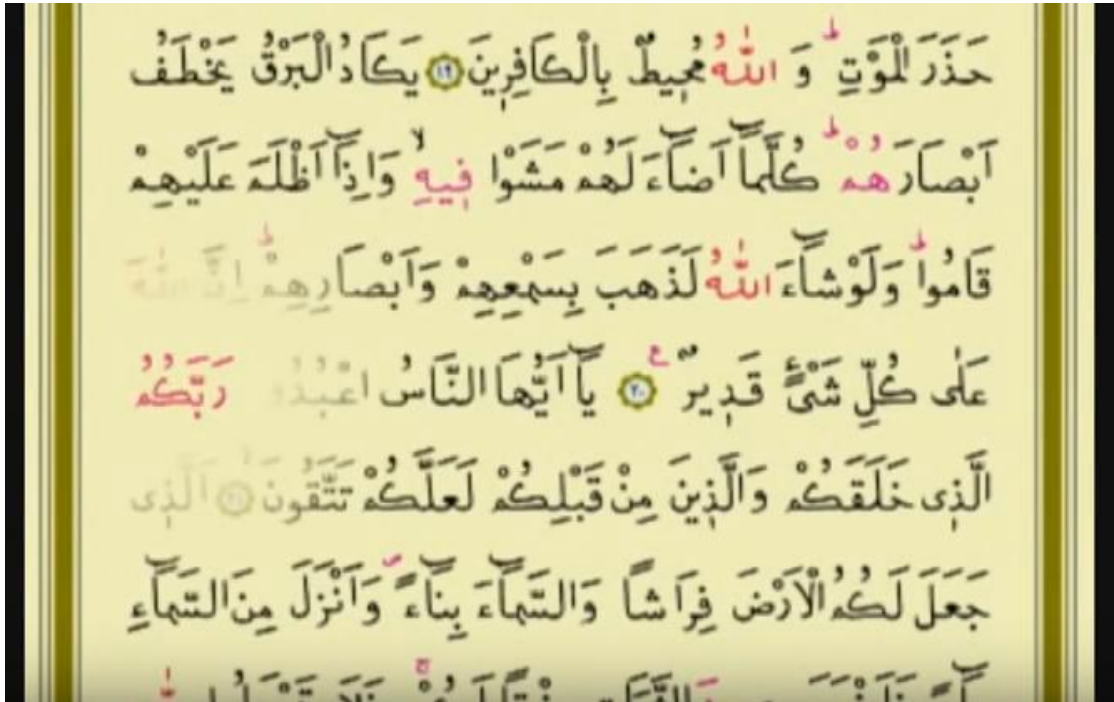 حَذَرَ الْمَوْتِۜ وَ اللّٰهُ مُحٖيطٌ بِالْكَافِرٖينَ ﴿١٩﴾ يَكَادُ الْبَرْقُ يَخْطَفُ
اَبْصَارَهُمْۜ كُلَّمَٓا اَضَٓاءَ لَهُمْ مَشَوْا فٖيهِۙ وَاِذَٓا اَظْلَمَ عَلَيْهِمْ
قَامُواۜ وَلَوْ شَٓاءَ اللّٰهُ لَذَهَبَ بِسَمْعِهِمْ وَاَبْصَارِهِمْۜ اِنَّ اللّٰهَ
عَلٰى كُلِّ شَیْءٍ قَدٖيرٌࣖ ﴿٢٠﴾ يَٓا اَيُّهَا النَّاسُ اعْبُدُوا رَبَّكُمُ
الَّذٖى خَلَقَكُمْ وَالَّذٖينَ مِنْ قَبْلِكُمْ لَعَلَّكُمْ تَتَّقُونَۙ ﴿٢١﴾ اَلَّذٖى
جَعَلَ لَكُمُ الْاَرْضَ فِرَاشًا وَالسَّمَٓاءَ بِنَٓاءًۖ وَاَنْزَلَ مِنَ السَّمَٓاءِ